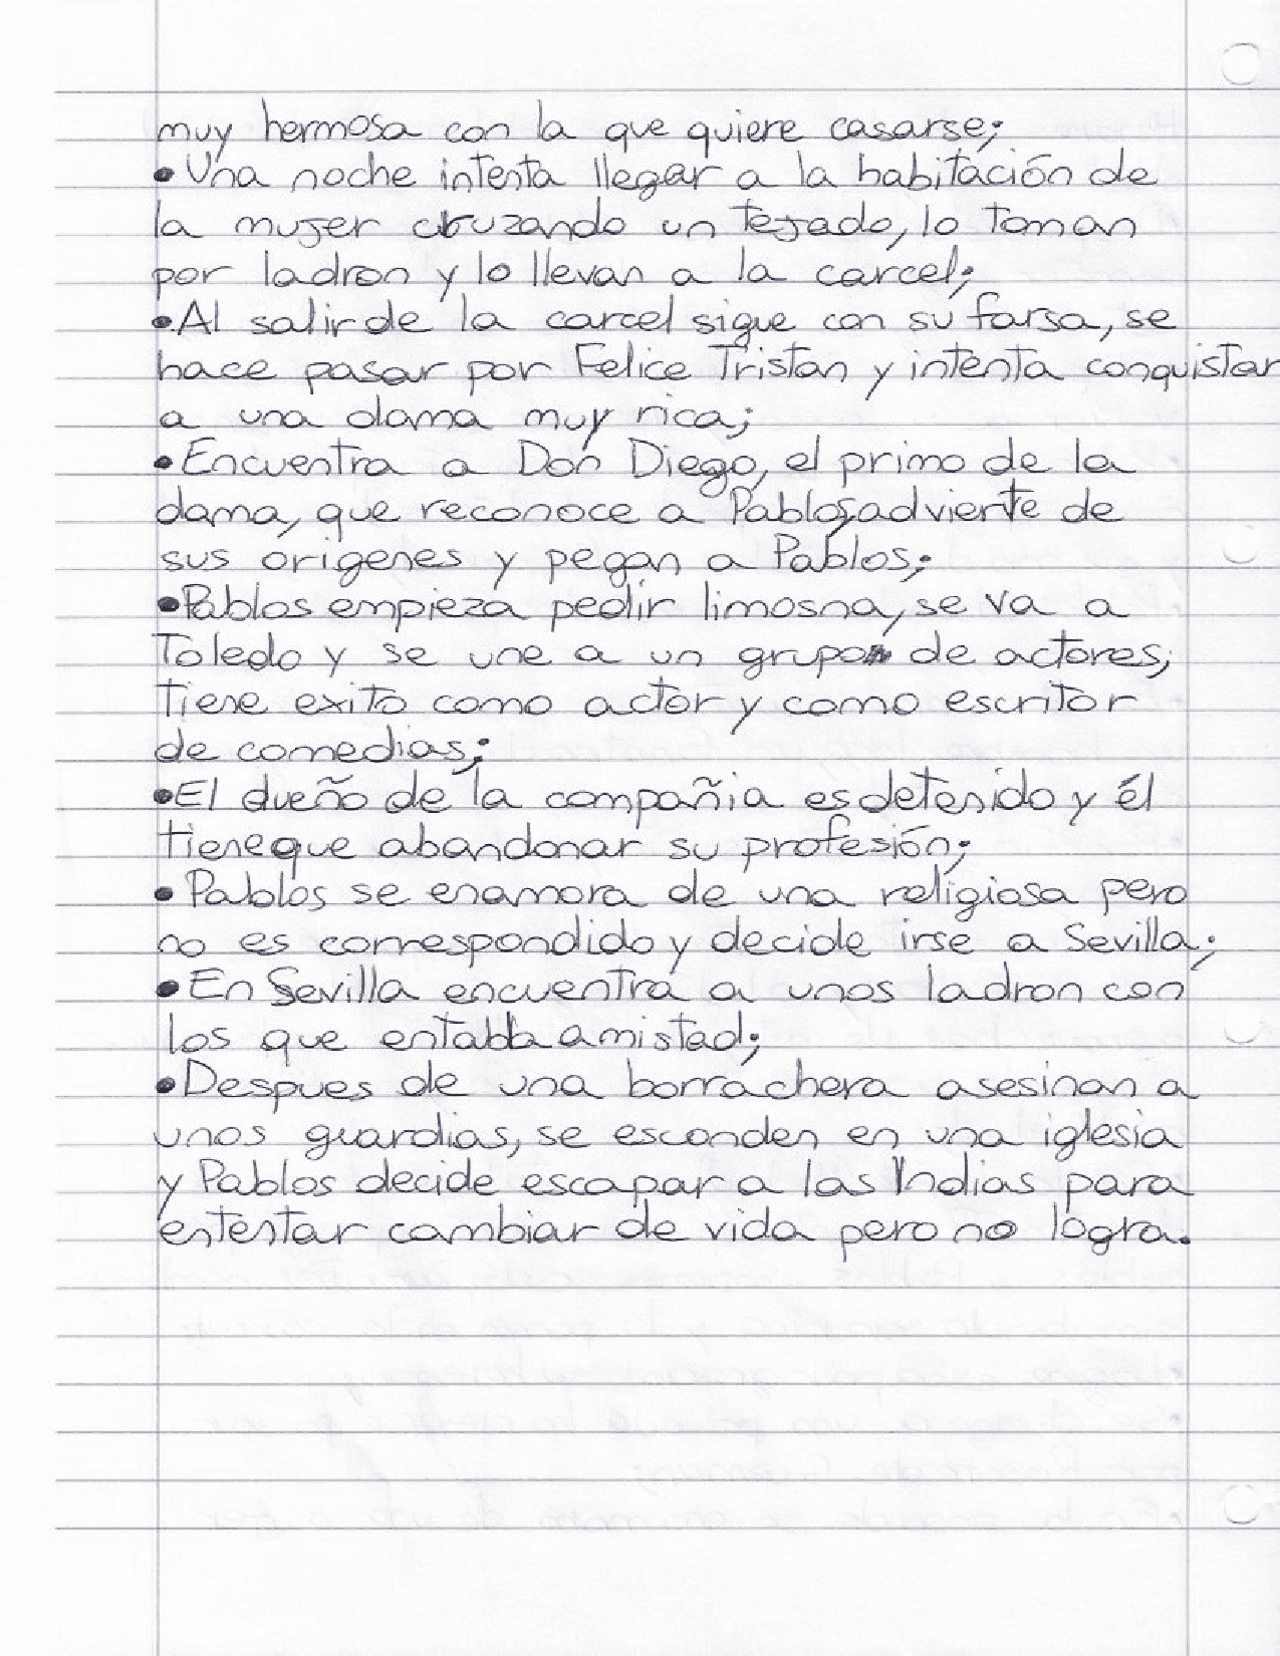 muy hermosa con la que quiere casarse;
• Una noche intenta llegar a la habitación de
la mujer cruzando un tejado, lo toman
por ladron y lo llevan a la carcel;
• Al salir de la carcel sigue con su farsa, se
hace pasar por Felice Tristan y intenta conquistar
a una dama muy rica;
• Encuentra a Don Diego, el primo de la
dama, que reconoce a Pablos, advierte de
sus origenes y pegan a Pablos;
• Pablos empieza pedir limosna, se va a
Toledo y se une a un grupo de actores,
tiene exito como actor y como escritor
de comedias;
• El dueño de la compañia es detenido y él
tiene que abandonar su profesión;
• Pablos se enamora de una religiosa pero
no es correspondido y decide irse a Sevilla;
• En Sevilla encuentra a unos ladron con
los que entabla amistad;
• Despues de una borrachera asesinan a
unos guardias, se esconden en una iglesia
y Pablos decide escapar a las Indias para
ententar cambiar de vida pero no logra.